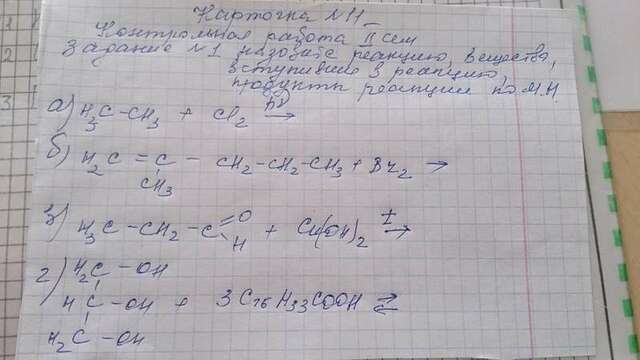 Карточка №11
Контрольная работа II сем
Задание №1 назовите реакцию, вещества,
вступившие в реакцию,
продукты реакции по М.Н.
1
2
3
а) H3C-CH3 + Cl2 hν →
б) H2C = C - CH2 - CH2 - CH3 + Br2 →
CH3
з) H3C - CH2 - C =O H + Cu(OH)2 t →
г) H2C - OH
HC - OH + 3C16H33COOH ⇄
H2C - OH